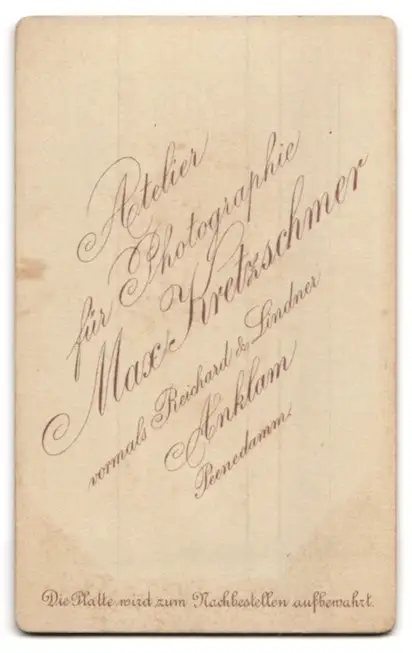 Atelier
für Photographie
Max Kretzschmer
vormals Reichard & Lindner
Anklam
Peenedamm.
Die Platte wird zum Nachbestellen aufbewahrt.